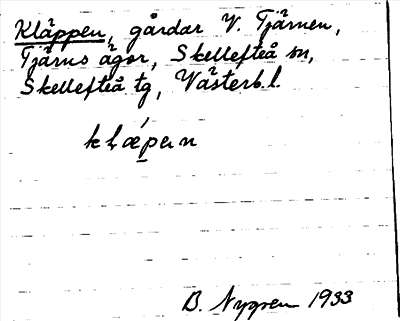 Kläppen, gårdar V. Tjärnen,
Tjärns ägor, Skellefteå sn,
Skellefteå tg, Västerb. l.
B. Nygren 1933